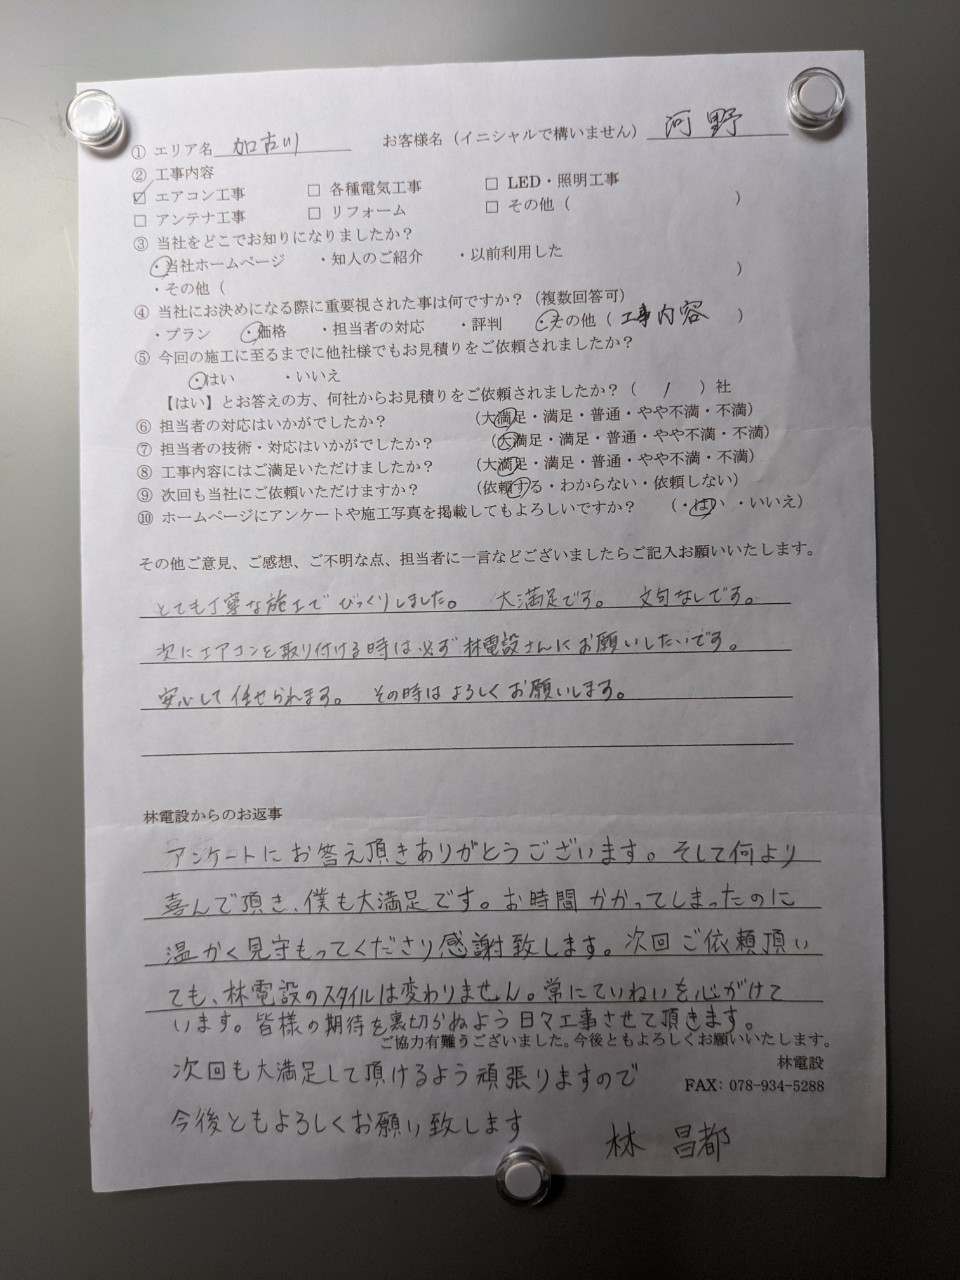 ① エリア名 加古川 お客様名（イニシャルで構いません） 河野
② 工事内容
☑ エアコン工事 □ 各種電気工事 □ LED・照明工事
□ アンテナ工事 □ リフォーム □ その他（ ）
③ 当社をどこでお知りになりましたか？
・当社ホームページ ・知人のご紹介 ・以前利用した
・その他（ ）
④ 当社にお決めになる際に重要視された事は何ですか？（複数回答可）
・プラン ・価格 ・担当者の対応 ・評判 ・その他（ 工事内容 ）
⑤ 今回の施工に至るまでに他社様でもお見積りをご依頼されましたか？
・はい ・いいえ
【はい】とお答えの方、何社からお見積りをご依頼されましたか？（ / ）社
⑥ 担当者の対応はいかがでしたか？ （大満足・満足・普通・やや不満・不満）
⑦ 担当者の技術・対応はいかがでしたか？ （大満足・満足・普通・やや不満・不満）
⑧ 工事内容にはご満足いただけましたか？ （大満足・満足・普通・やや不満・不満）
⑨ 次回も当社にご依頼いただけますか？ （依頼する・わからない・依頼しない）
⑩ ホームページにアンケートや施工写真を掲載してもよろしいですか？ （・はい ・いいえ）
その他ご意見、ご感想、ご不明な点、担当者に一言などございましたらご記入お願いいたします。
とても丁寧な施工でびっくりしました。 大満足です。 文句なしです。
次にエアコンを取り付ける時は必ず林電設さんにお願いしたいです。
安心して任せられます。 その時はよろしくお願いします。
林電設からのお返事
アンケートにお答え頂きありがとうございます。そして何より
喜んで頂き、僕も大満足です。お時間かかってしまったのに
温かく見守もってくださり感謝致します。次回ご依頼頂い
ても、林電設のスタイルは変わりません。常にていねいを心がけて
います。皆様の期待を裏切らぬよう日々工事させて頂きます。
ご協力有難うございました。今後ともよろしくお願いいたします。
林電設
次回も大満足して頂けるよう頑張りますので
FAX: 078-934-5288
今後ともよろしくお願い致します
林 昌都